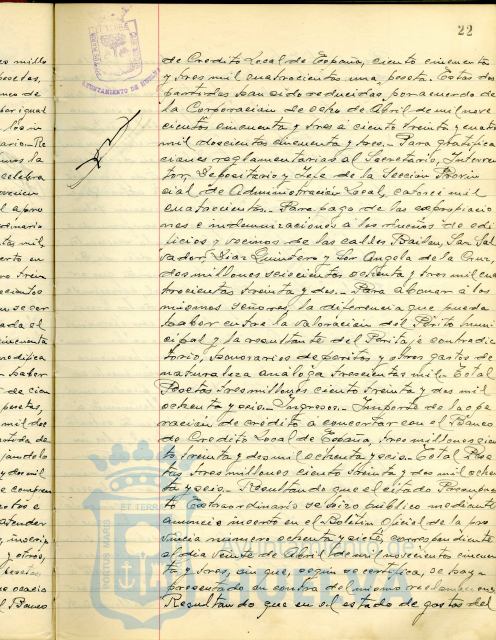 22
AYUNTAMIENTO DE HUELVA
de Credito Local de España, ciento cincuenta
y tres mil cuatrocientas una, peseta. Estas dos
partidas han sido reducidas, por acuerdo de
la Corporación de ocho de Abril de mil nove
cientos cincuenta y tres á ciento treinta y cuatro
mil doscientas cincuenta y tres.- Para gratifica
ciones reglamentarias al Secretario, Interven
tor, Depositario y Jefe de la Sección Provin
cial de Administración Local, catorce mil
cuatrocientas.- Para pago de las expropiacio
nes e indemnizaciones a los dueños de edi
ficios y vecinos de las calles Bailen, San Sal
vador, Diaz Quintero y Sor Angela de la Cruz,
dos millones seiscientos ochenta y tres mil cua
trocientas treinta y dos.- Para abonar á los
mismos señores, la diferencia que pueda
haber entre la valoración del Perito muni
cipal y la resultante del Peritaje contradic
torio, honorarios de peritos y otros gastos de
naturaleza analoga trescientas mil.- Total
Pesetas tres millones ciento treinta y dos mil
ochenta y seis.- Ingresos.- Importe de la ope
ración de crédito a concertar con el Banco
de Credito Local de España, tres millones cien
to treinta y dos mil ochenta y seis.- Total Pese
tas, tres millones ciento treinta y dos mil ochen
ta y seis.- Resultando que el citado Presupues
to Extraordinario se hizo publico mediante
anuncio inserto en el Boletin Oficial de la pro
vincia numero ochenta y siete, correspondiente
al dia veinte de abril de mil novecientos cincuen
ta y tres, sin que, según se certifica, se haya
presentado en contra del mismo reclamaciones
Resultando que en el estado de gastos del
ET TERR
PORTUS MARIS
HUELVA